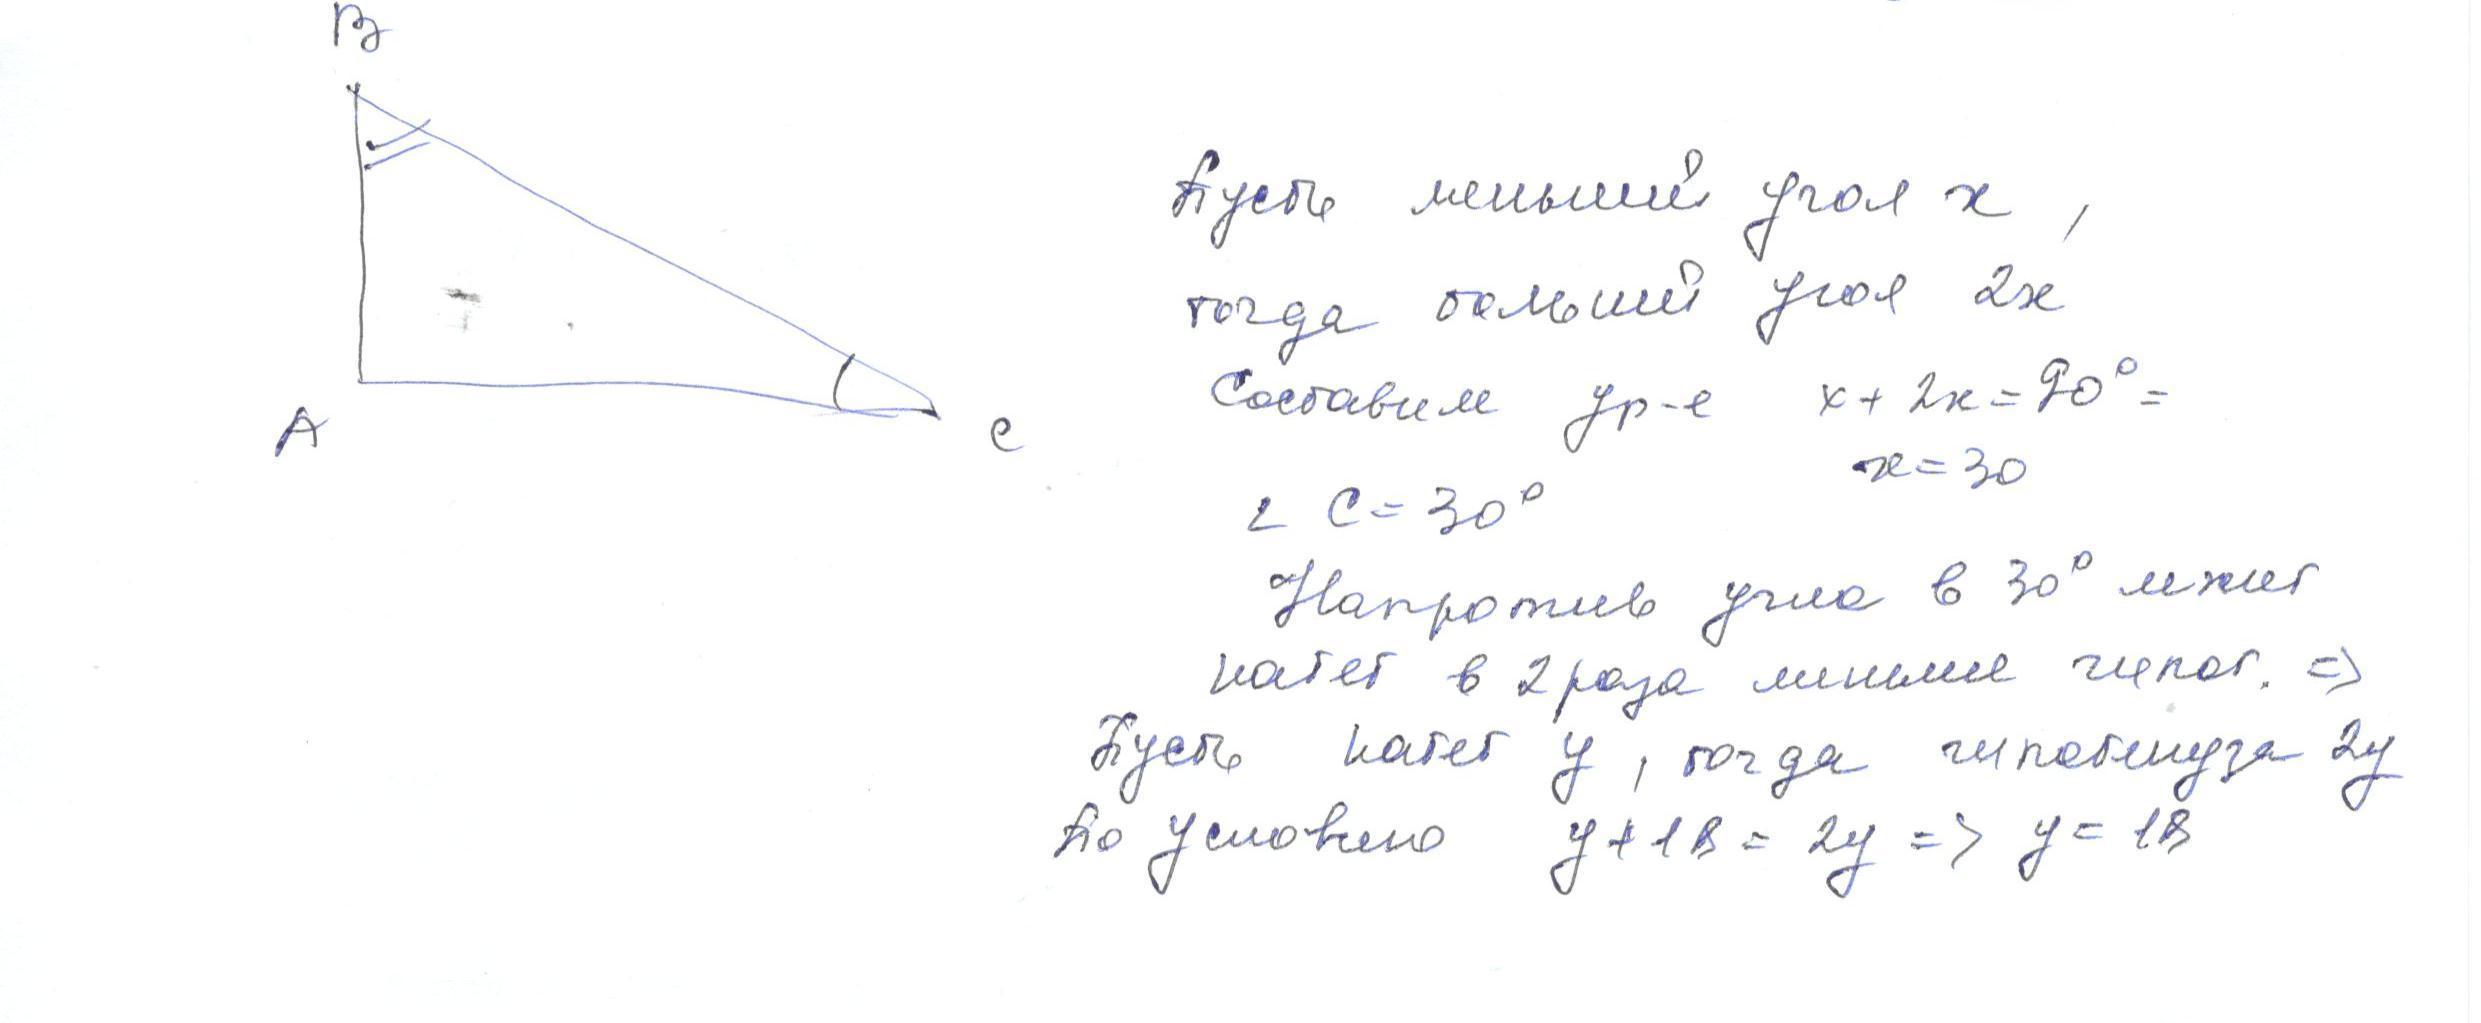 В
А
С
Пусть меньший угол x,
тогда больший угол 2x
Составим ур-е x + 2x = 90° =
x = 30
∠ C = 30°
Напротив угла в 30° лежит
катет в 2 раза меньше гипот. =>
Пусть катет y, тогда гипотенуза 2y
По условию y + 18 = 2y => y = 18